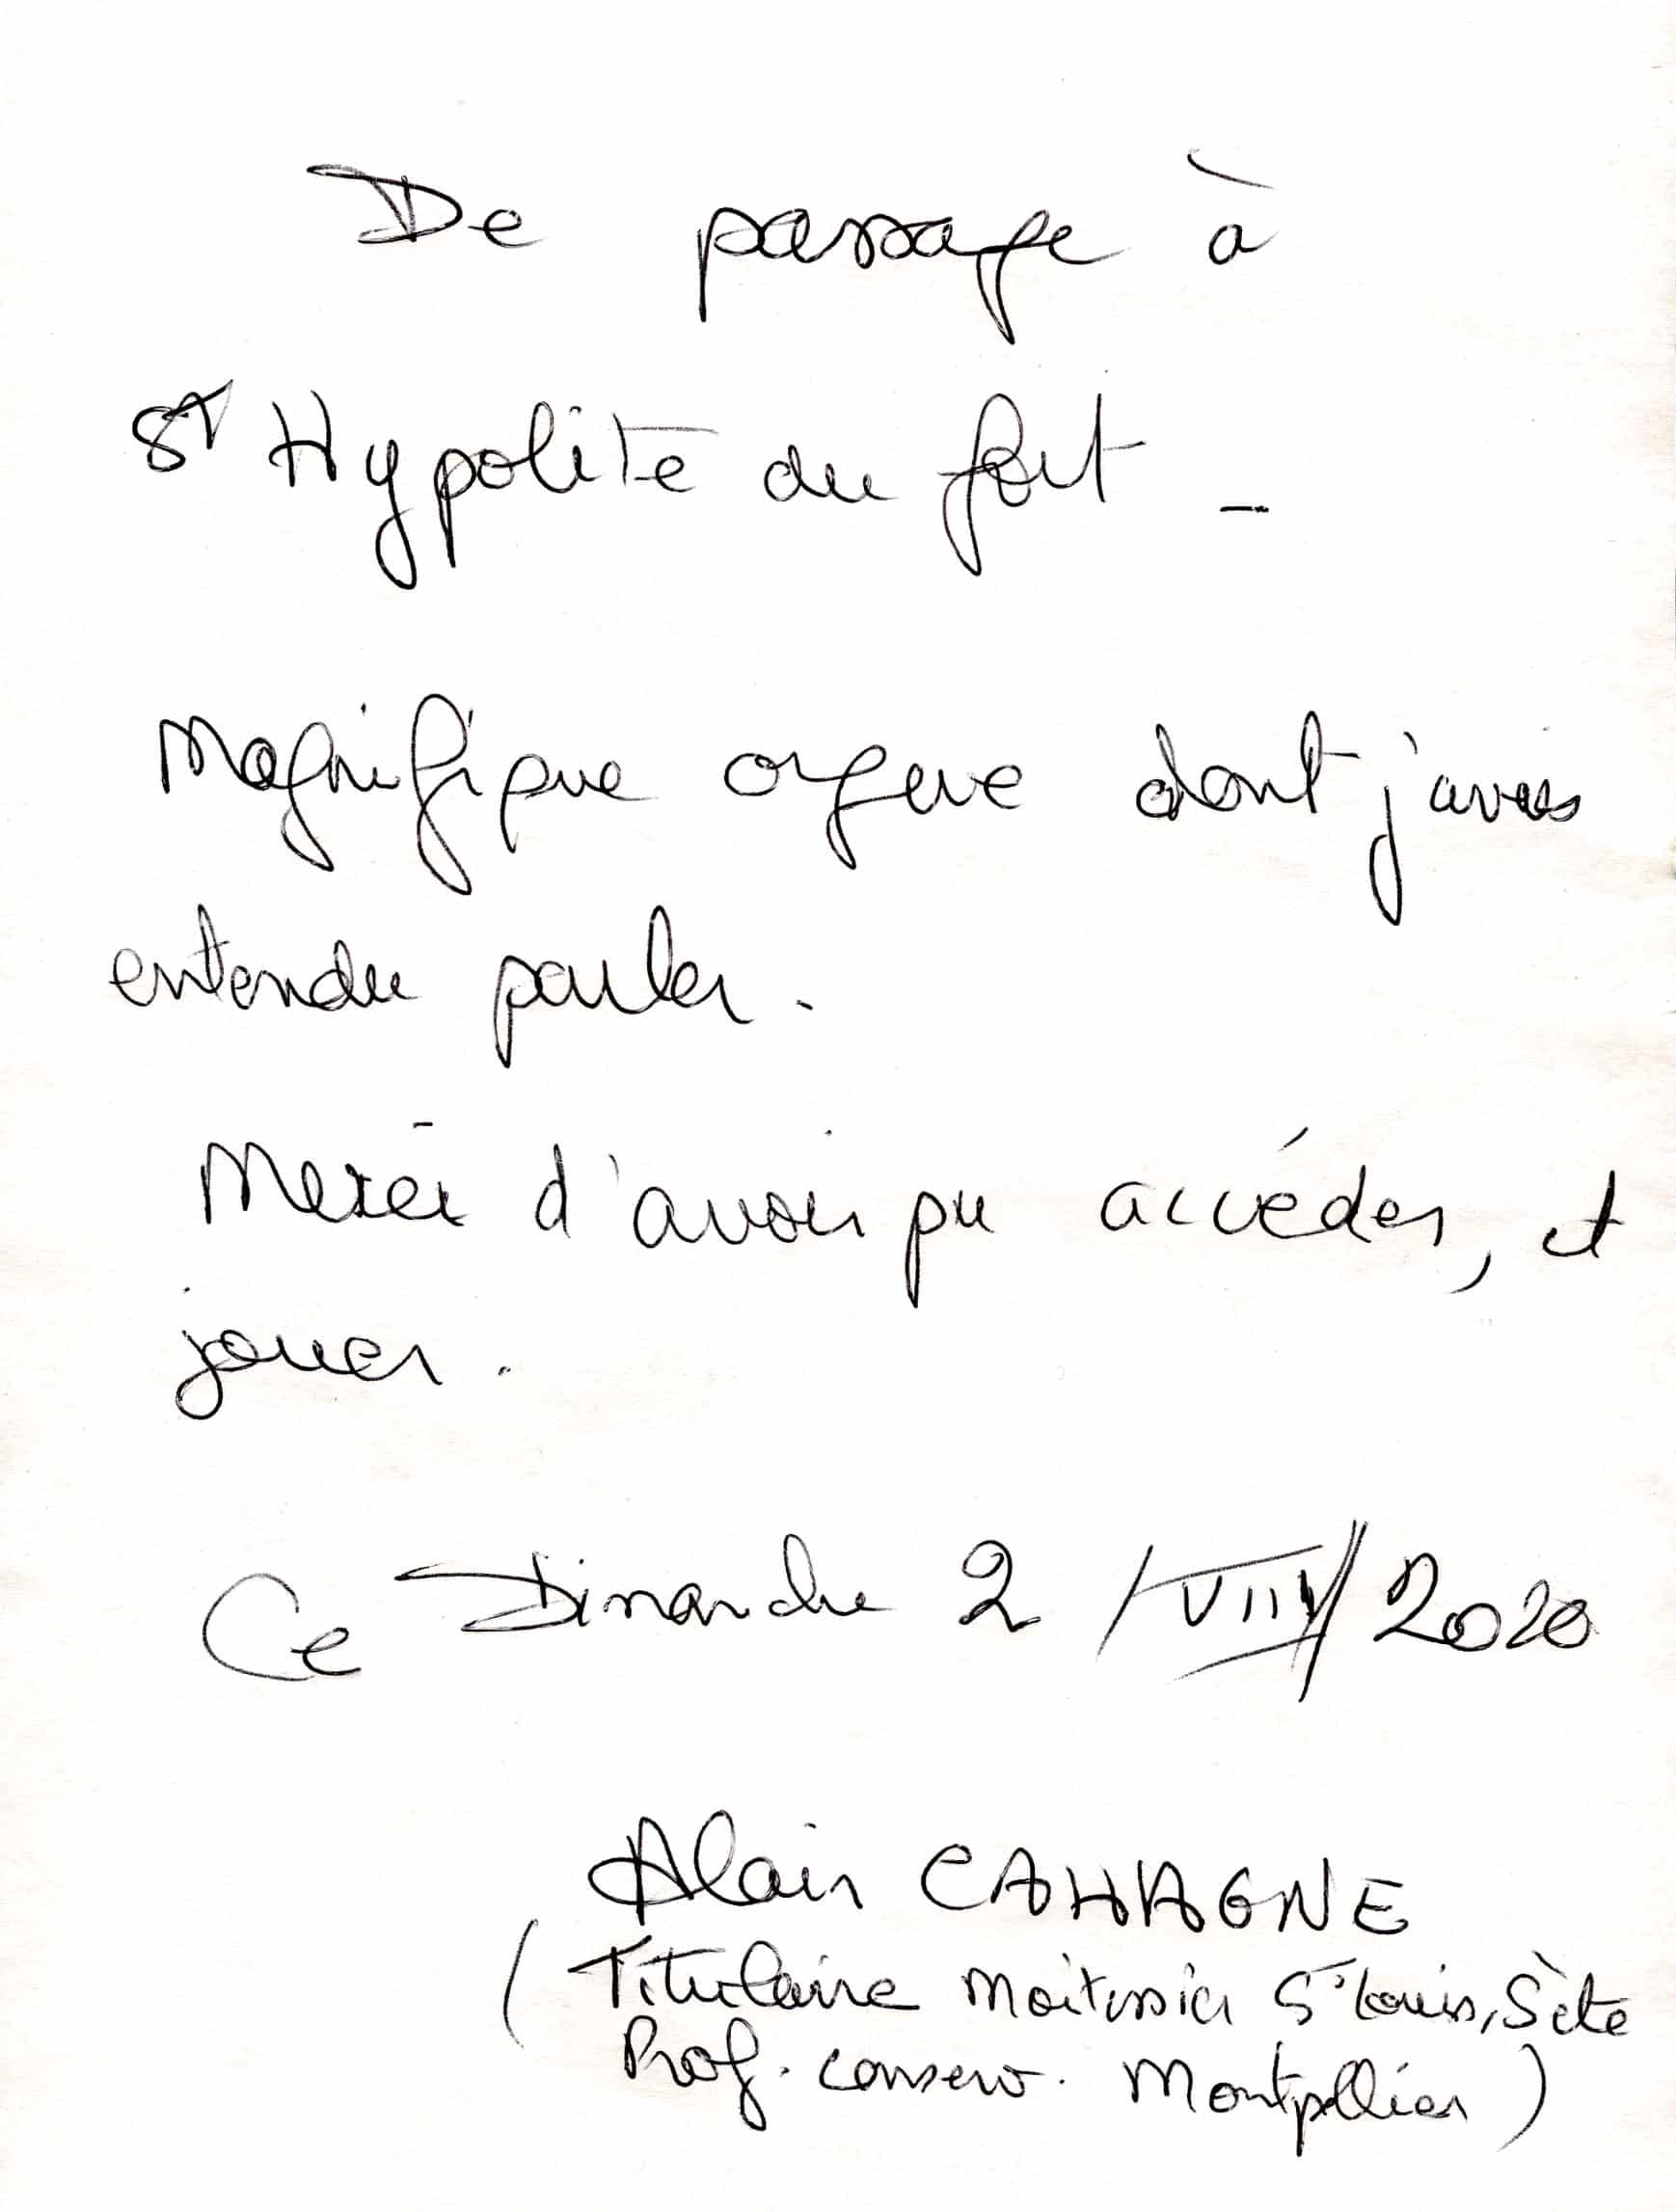 De passage à
St Hypolite du fort -
Magnifique orgue dont j'avais
entendu parler.
Merci d'avoir pu accéder, et
jouer.
Ce Dimanche 2 /VIII/ 2020
Alain CAHAGNE
(Titulaire Moitessier St Louis, Sète
Prof. conserv. Montpellier)